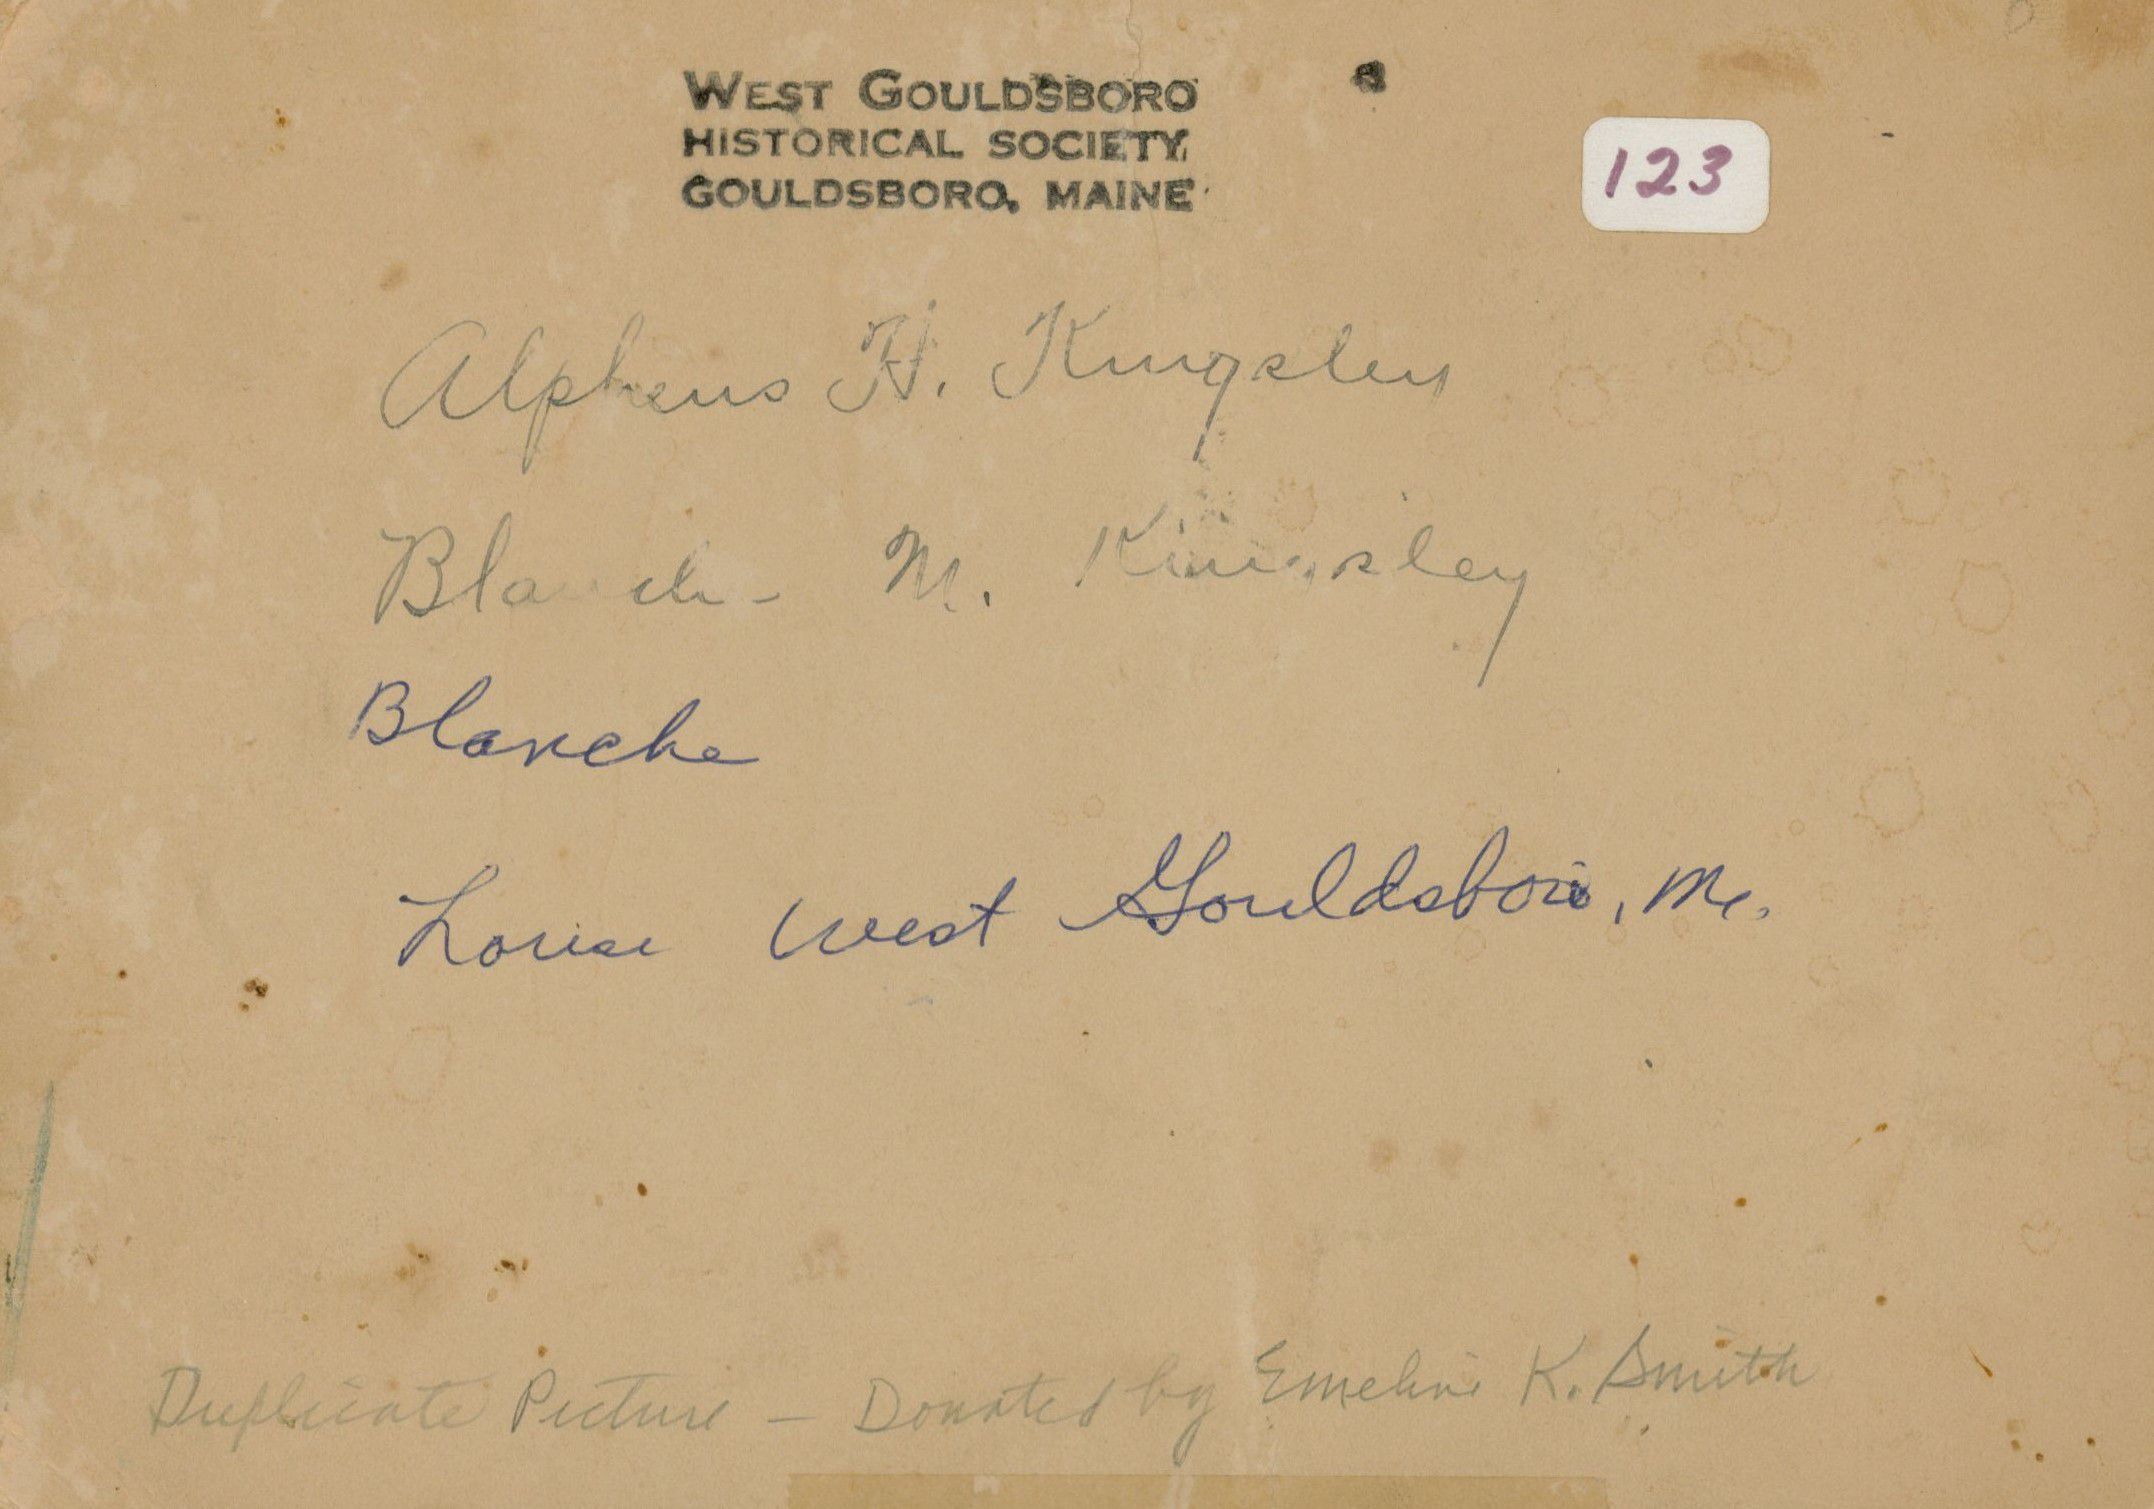 WEST GOULDSBORO
HISTORICAL SOCIETY,
GOULDSBORO, MAINE
123
Alpheus H. Kingsley
Blanche M. Kingsley
Blanche
Louise West Gouldsboro, Me.
Duplicate Picture - Donated by Emeline K. Smith